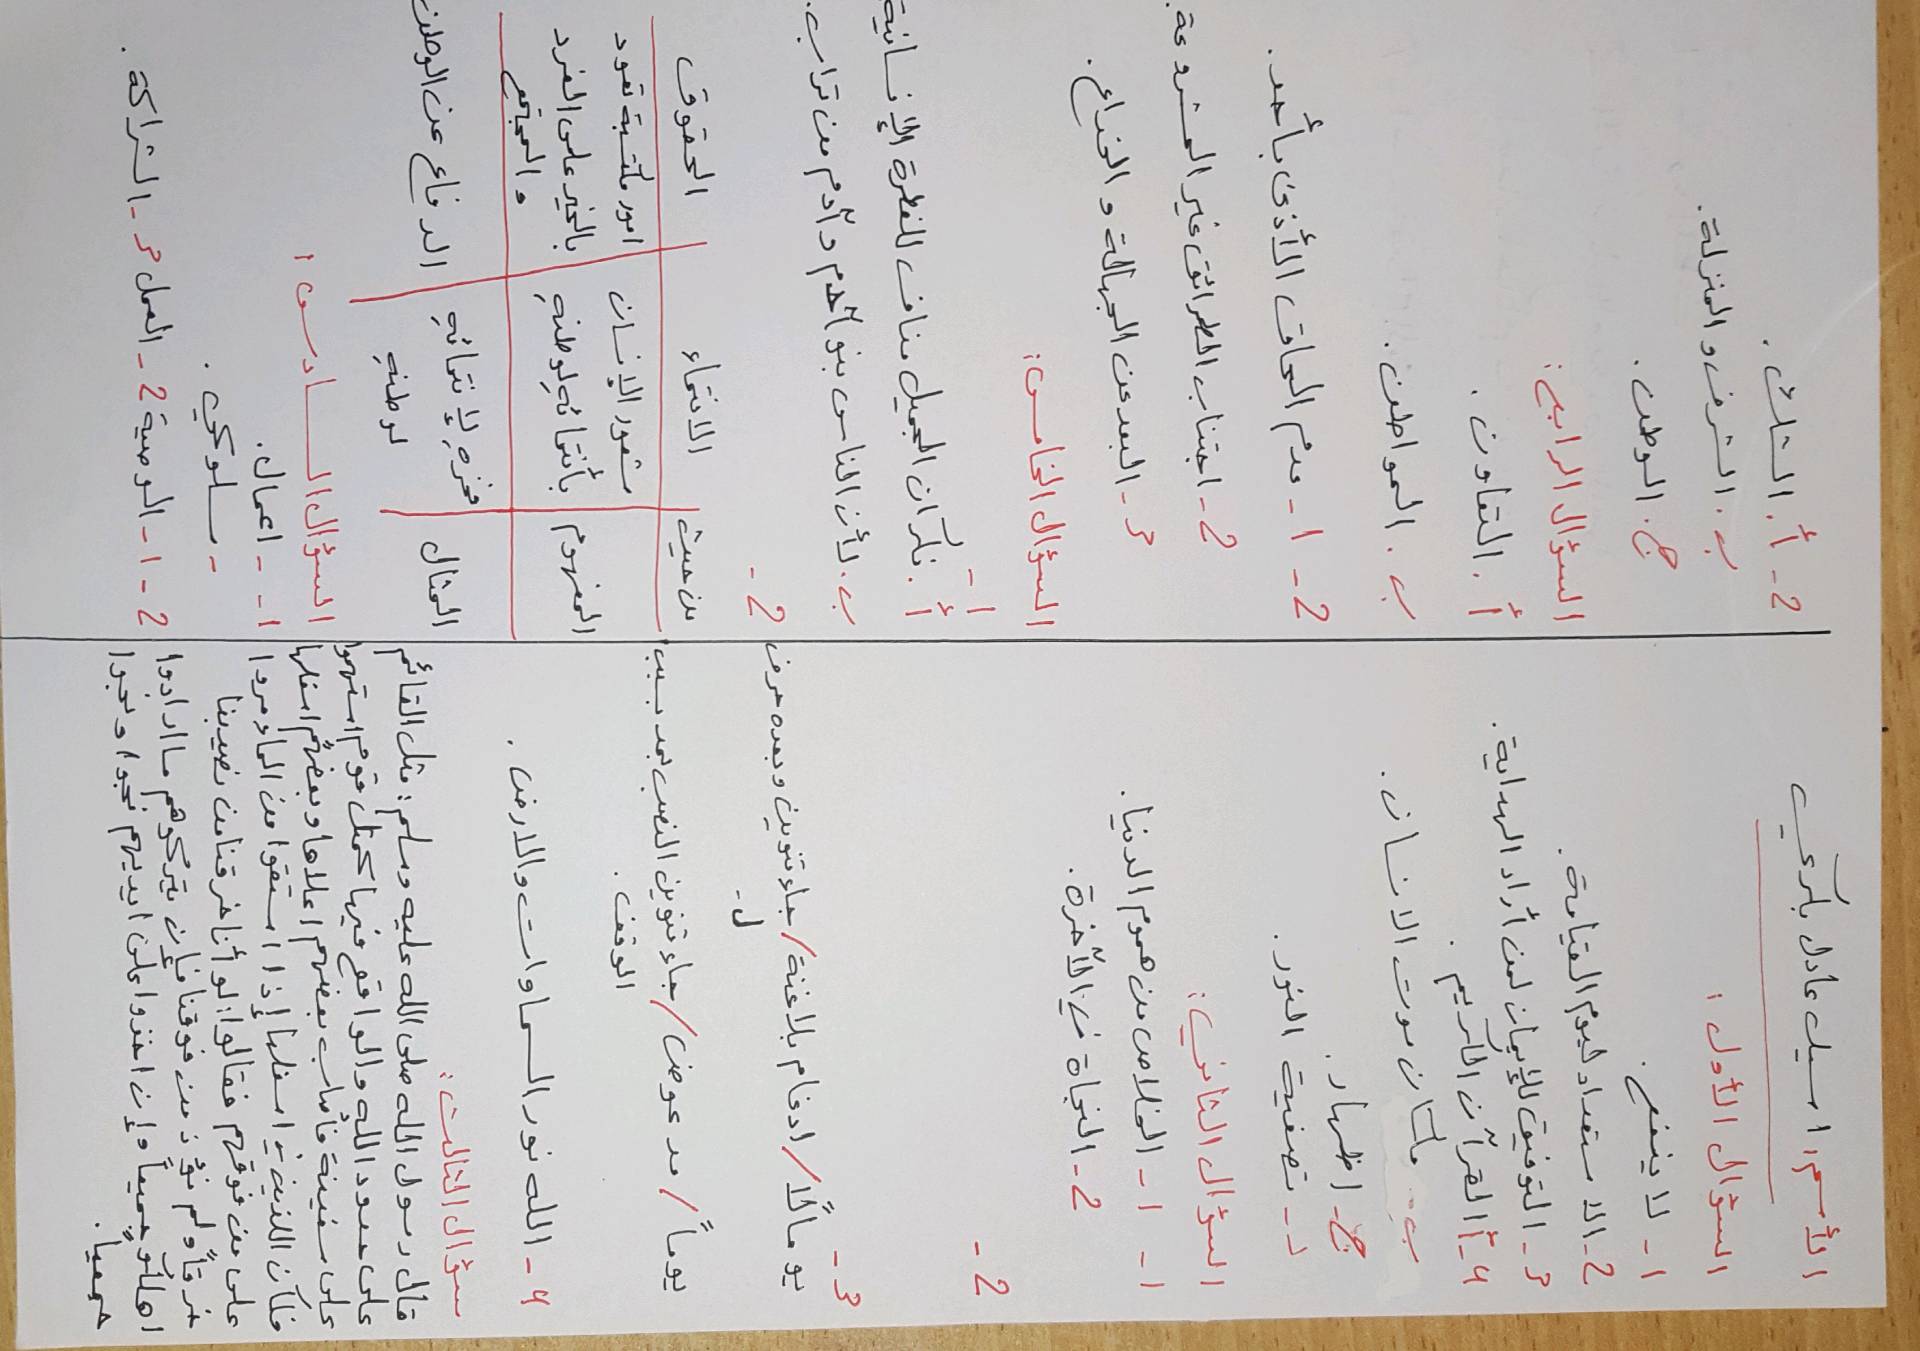 الأسم: اسيل عادل بلركي
السؤال الأول :
١- لا ينفع.
2- الاستعداد ليوم القيامة.
٣- التوفيق للإيمان لمن أراد الهداية.
٤- أ القرآن الكريم.
ب. مكان موت الانسان.
ج- اظهار.
د- تصفية النور.
السؤال الثاني :
١- ١- الخلاص من هموم الدنيا.
2- النجاة في الآخرة.
2-
٣- يو مالًا / ادغام بلاغنة / جاء تنوين وبعده حرف
ل-
يوماً / مد عوض / جاء تنوين النصب بمد بسبب
الوقف.
٤- الله نور السماوات والارض.
سؤال الثالث :
قال رسول الله صلى الله عليه وسلم : مثل القائم
على حدود الله والواقع فيها كمثل قوم استهموا
على سفينة فأصاب بعضهم اعلاها وبعضهم اسفلها
فكان اللذين في اسفلها إذا استقوا من الماء مروا
على من فوقهم فقالوا: لو أنا خرقنا من نصيبنا
خرقاً ولم نؤذ من فوقنا فإن يتركوهم ما ارادوا
اهلكو جميعاً وإن اخذوا على ايديهم نجوا ونجوا
جميعاً.
2- أ. الثلث.
ب. الشرف والمنزلة.
ج. الوطن.
السؤال الرابع :
أ. التعاون.
ب. المواطن.
2- ١- عدم الحاق الأذى بأحد.
2- اجتناب الطرائق غير المشروعة.
٣- البعد عن الجهالة والخداع.
السؤال الخامس :
١-
أ. نكران الجميل مناف للفطرة الإنسانية
ب. لأن الناس بنو آدم وآدم من تراب.
2-
من حيث الانتماء الحقوق
المفهوم شعور الإنسان بأنتمائه لوطنهِ امور مكتسبة تعود بالخير على الفرد والمجتمع
المثال فخرهِ لإنتمائهِ لوطنهِ الدفاع عن الوطن
السؤال الســـادس :
١- - اعمال.
- سلوكي.
2- ١- الوصية 2- العمل ٣- الشراكة.